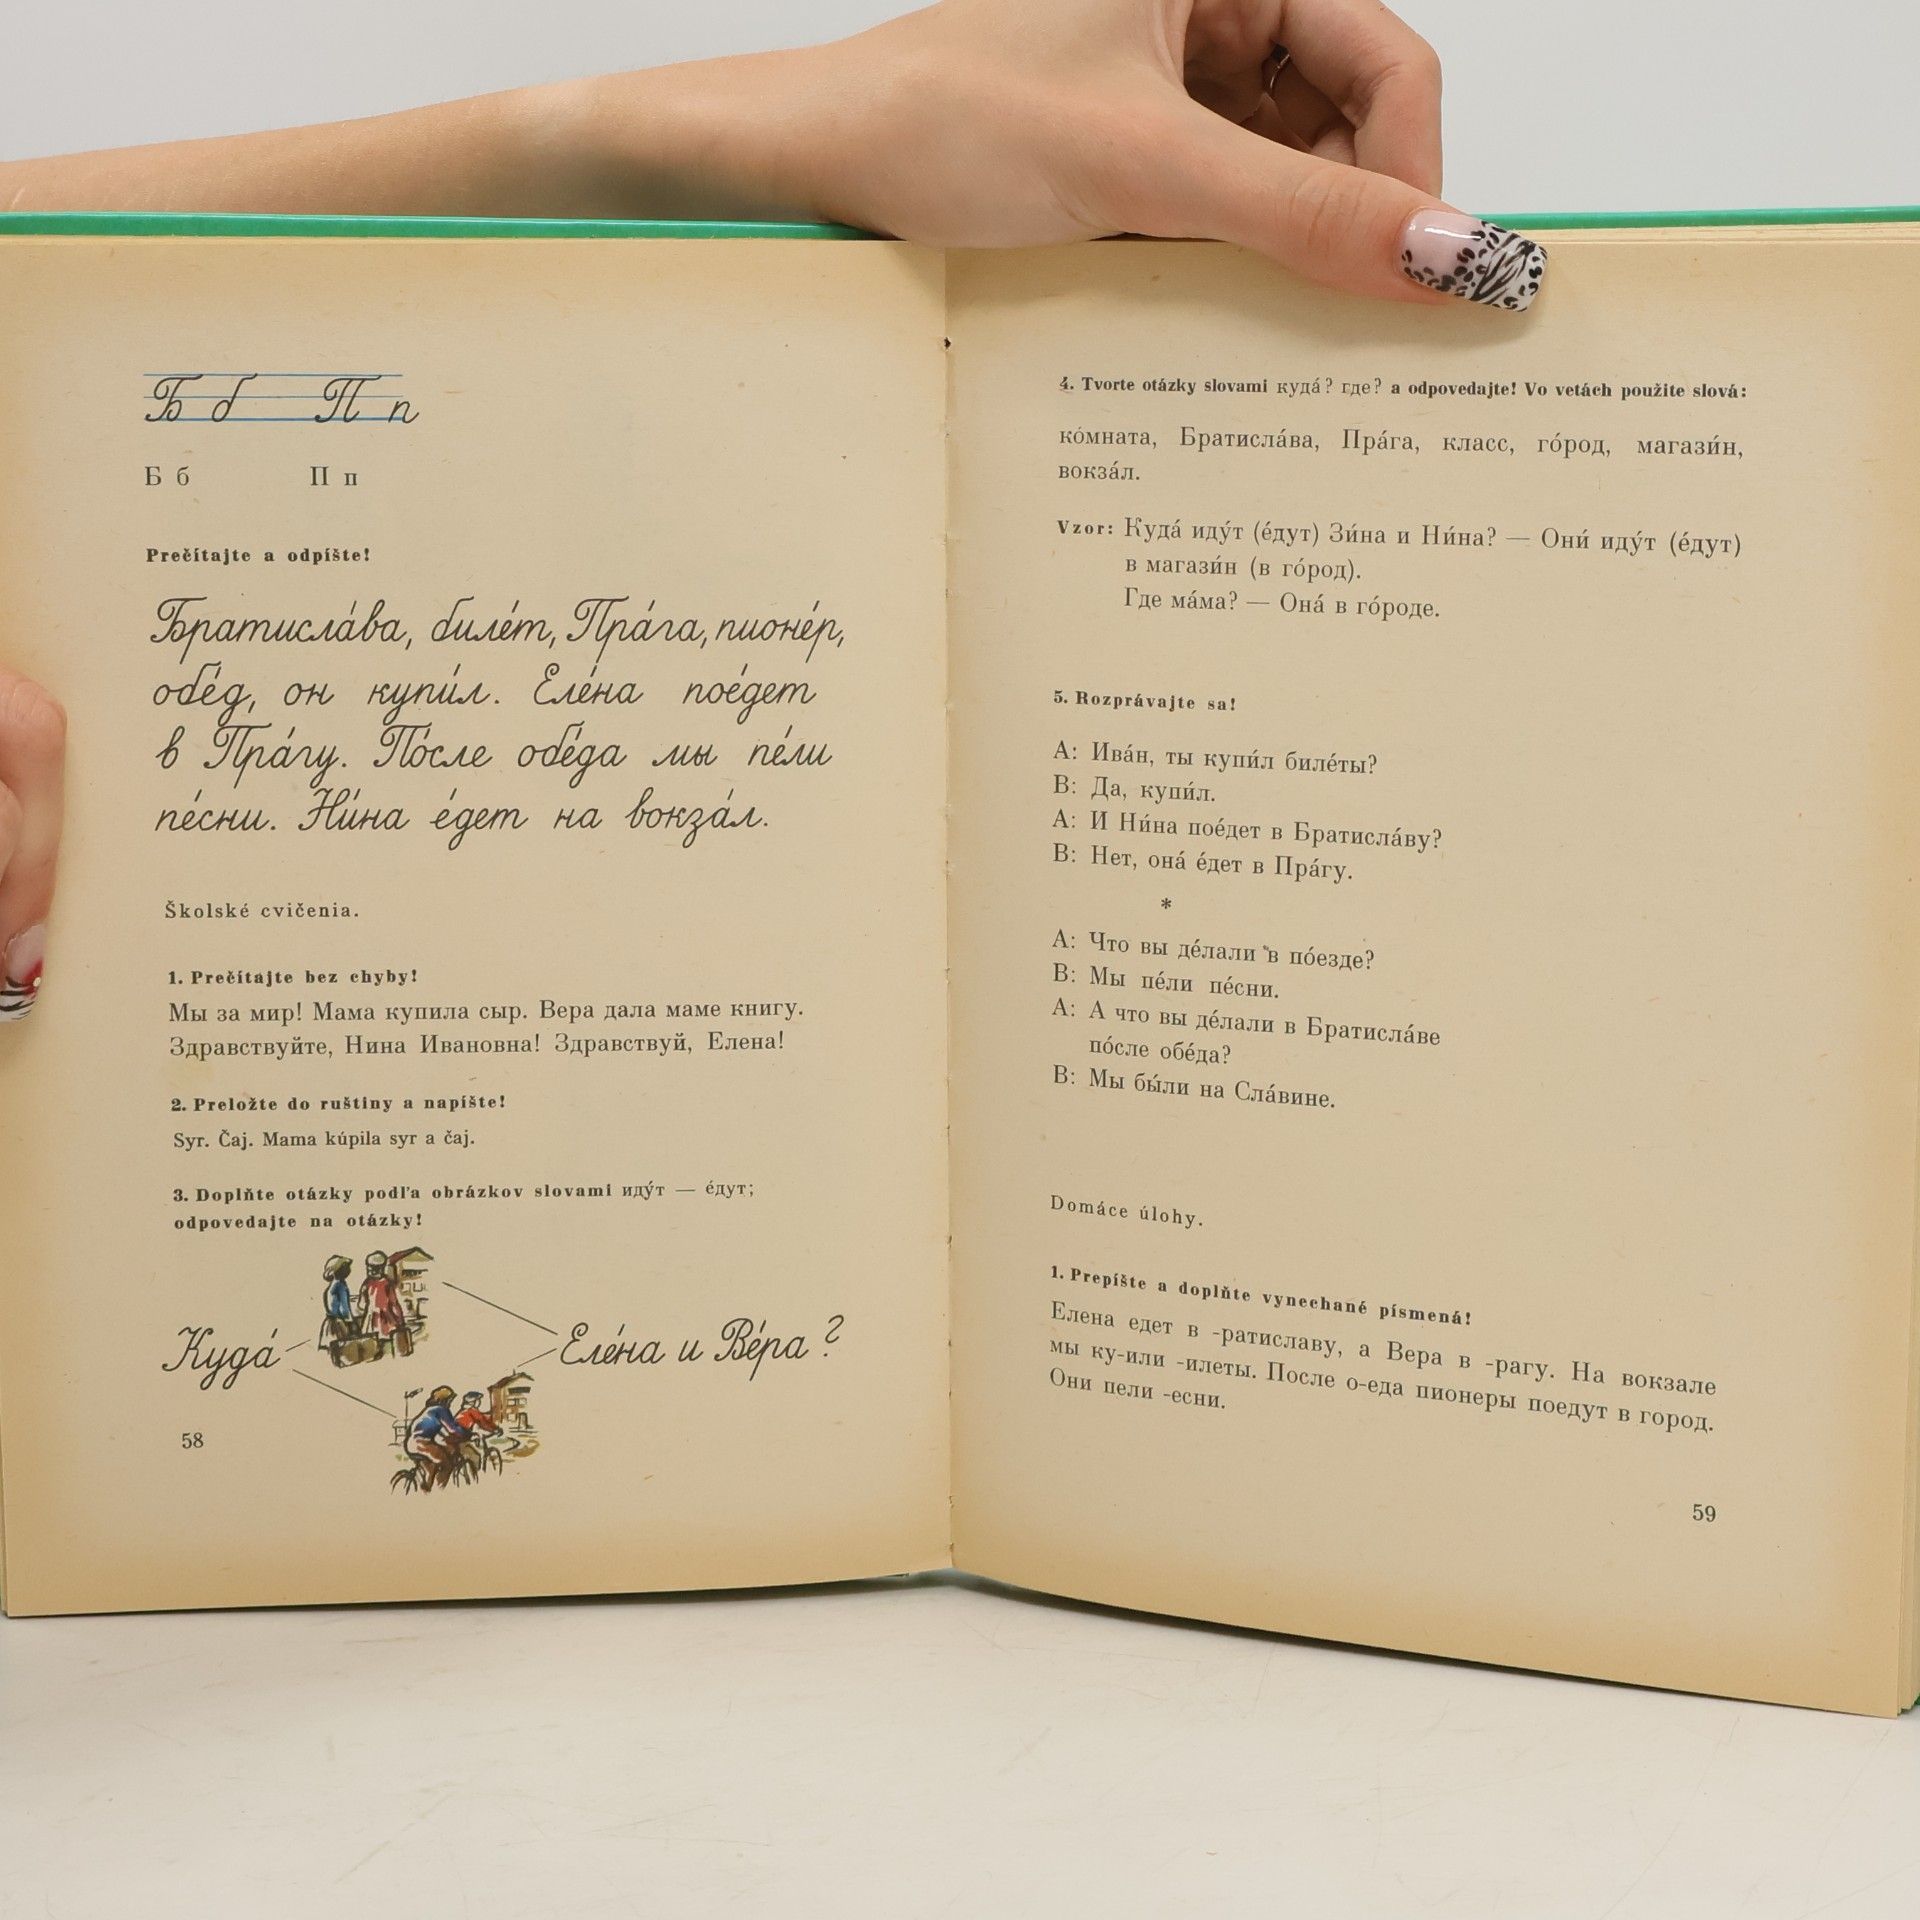 Б б П п
Б б П п
Prečítajte a odpíšte!
Братисла́ва, биле́т, Пра́га, пионе́р,
обе́д, он купи́л. Еле́на пое́дет
в Пра́гу. По́сле обе́да мы пе́ли
пе́сни. Ни́на е́дет на вокза́л.
Školské cvičenia.
1. Prečítajte bez chyby!
Мы за мир! Мама купила сыр. Вера дала маме книгу.
Здравствуйте, Нина Ивановна! Здравствуй, Елена!
2. Preložte do ruštiny a napíšte!
Syr. Čaj. Mama kúpila syr a čaj.
3. Doplňte otázky podľa obrázkov slovami иду́т — е́дут;
odpovedajte na otázky!
Куда́ Еле́на и Ве́ра?
58
4. Tvorte otázky slovami куда́? где? a odpovedajte! Vo vetách použite slová:
ко́мната, Братисла́ва, Пра́га, класс, го́род, магази́н,
вокза́л.
Vzor: Куда́ иду́т (е́дут) Зи́на и Ни́на? — Они́ иду́т (е́дут)
в магази́н (в го́род).
Где ма́ма? — Она́ в го́роде.
5. Rozprávajte sa!
A: Ива́н, ты купи́л биле́ты?
B: Да, купи́л.
A: И Ни́на пое́дет в Братисла́ву?
B: Нет, она́ е́дет в Пра́гу.
*
A: Что вы де́лали в по́езде?
B: Мы пе́ли пе́сни.
A: А что вы де́лали в Братисла́ве
по́сле обе́да?
B: Мы бы́ли на Сла́вине.
Domáce úlohy.
1. Prepíšte a doplňte vynechané písmená!
Елена едет в -ратиславу, а Вера в -рагу. На вокзале
мы ку-или -илеты. После о-еда пионеры поедут в город.
Они пели -есни.
59